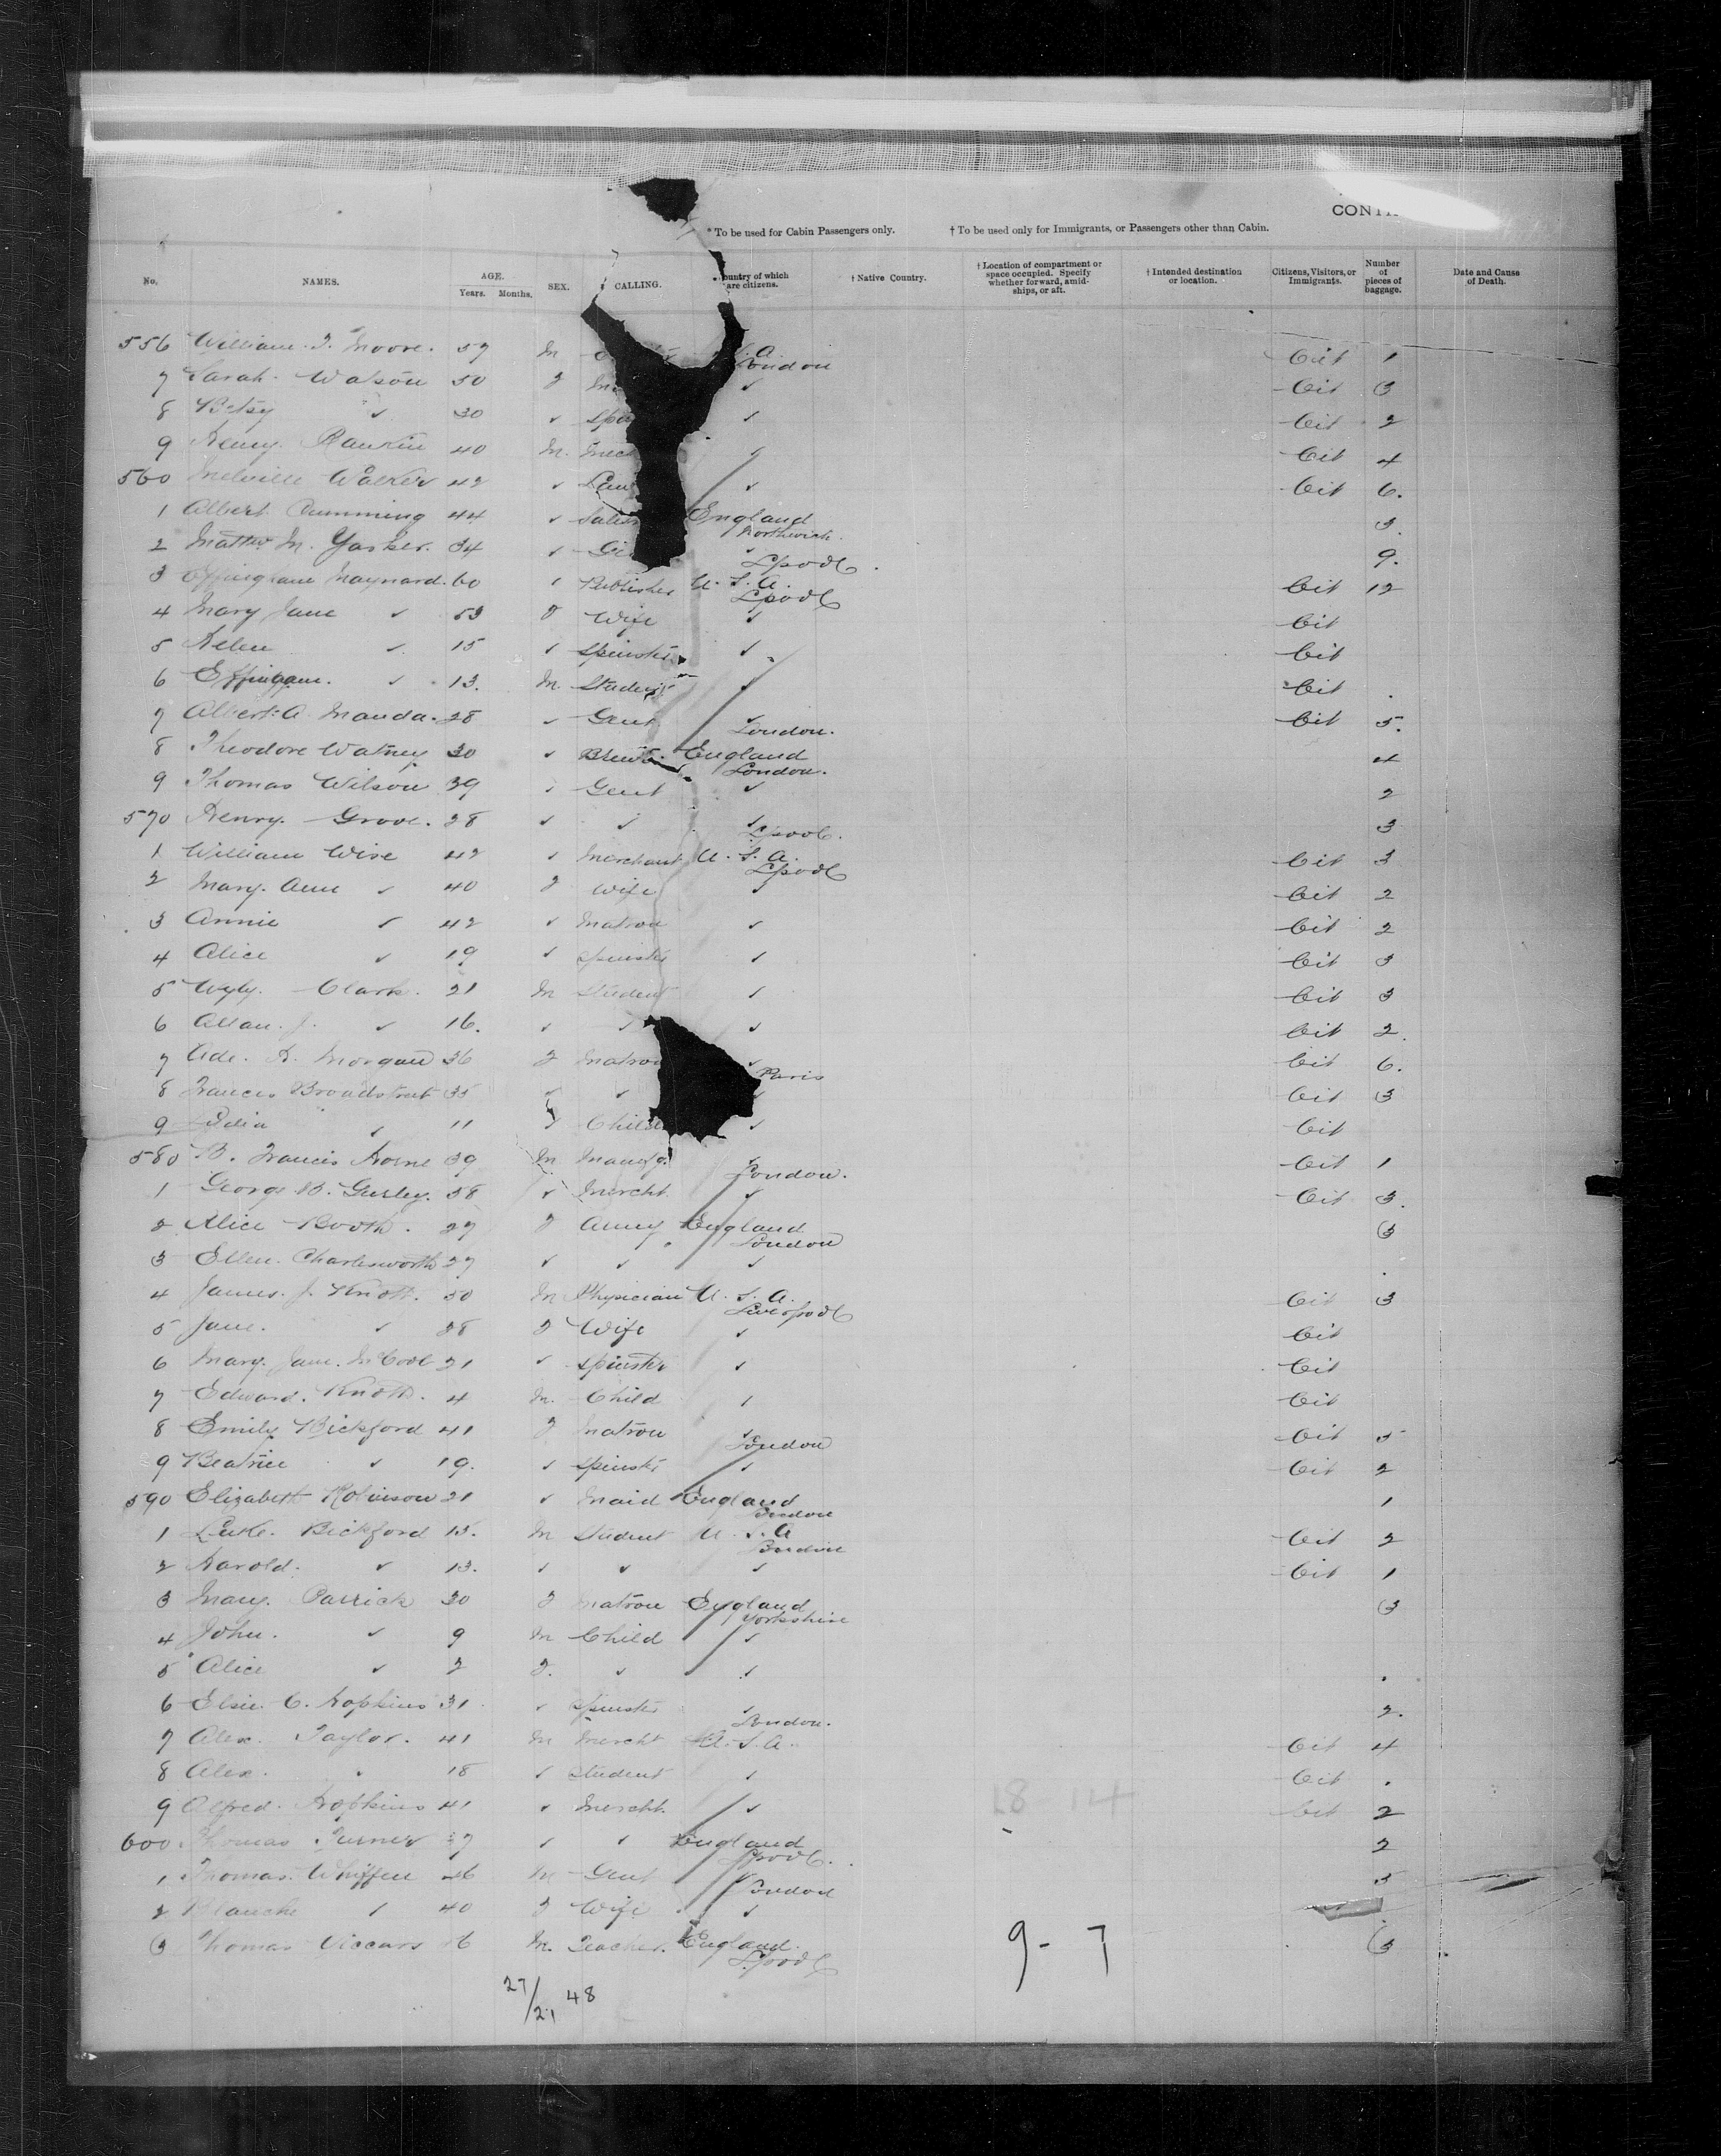 CONTI
* To be used for Cabin Passengers only. † To be used only for Immigrants, or Passengers other than Cabin.
No. NAMES. AGE. Years. Months. SEX. CALLING. ountry of which are citizens. † Native Country. † Location of compartment or space occupied. Specify whether forward, amid-ships, or aft. † Intended destination or location. Citizens, Visitors, or Immigrants. Number of pieces of baggage. Date and Cause of Death.
556 William. Moore. 57 M A. London Cit 1
7 Sarah. Watson 50 F ✓ Cit 3
8 Betsy ✓ 30 ✓ Spi ✓ Cit 2
9 Henry. Rankin 40 M. Mech ✓ Cit 4
560 Melville Walker 42 ✓ Law ✓ Cit 6.
1 Albert Cumming 44 ✓ Sales England Northwich. 3.
2 Matthw M. Yorker. 34 ✓ Ge ✓ Lpool. 9.
3 Effingham Maynard. 60 ✓ Publisher U. S. A. Lpool Cit 12
4 Mary Jane ✓ 53 F Wife ✓ Cit
5 Helen ✓ 15 ✓ Spinster ✓ Cit
6 Effingam. ✓ 13. M. Student ✓ Cit .
7 Albert. A. Manda. 28 ✓ Gent ✓ London. Cit 5.
8 Theodore Watney 30 ✓ Brewer England London. 4
9 Thomas Wilson 39 ✓ Gent ✓ 2
570 Henry. Grove. 28 ✓ ✓ ✓ Lpool. 3
1 William Wise 42 ✓ Merchant U. S. A. Lpool Cit 3
2 Mary. Ann ✓ 40 F Wife ✓ Cit 2
3 Annie ✓ 42 ✓ Matron ✓ Cit 2
4 Alice ✓ 19 ✓ Spinster ✓ Cit 3
5 Wyly. Clark. 21 M Student ✓ Cit 3
6 Allan. J. ✓ 16. ✓ ✓ ✓ Cit 2.
7 Ade. H. Morgan 36 F Matron ✓ Paris Cit 6.
8 Frances Broadstreet 35 ✓ ✓ ✓ Cit 3
9 Lidia ✓ 11 ✓ Child ✓ Cit
580 B. Francis Horne 39 M Manufg. ✓ London. Cit 1
1 George B. Gurley. 58 ✓ Mercht. ✓ Cit 3.
2 Alice Booth. 27 F England London 3
3 Ellen. Charlesworth 27 ✓ ✓ ✓ .
4 James. J. Knott. 50 M Physician U. S. A. Liverpool Cit 3
5 Jane. ✓ 28 F Wife ✓ Cit
6 Mary. Jane. McCool 21 ✓ Spinster ✓ Cit
7 Edward. Knott. 4 M. Child ✓ Cit
8 Emily Bickford 41 F Matron ✓ London Cit 5
9 Beatrice ✓ 19. ✓ Spinster ✓ Cit 2
590 Elizabeth Robinson 21 ✓ Maid England London 1
1 Luke. Bickford 15. M Student U. S. A London Cit 2
2 Harold. ✓ 13. ✓ ✓ ✓ Cit 1
3 Mary. Parrick 30 F Matron England Yorkshire 3
4 John. ✓ 9 M Child ✓
5 Alice ✓ 2 F. ✓ ✓ .
6 Elsie. C. Hopkins 31 ✓ Spinster ✓ London. 2.
7 Alex. Taylor. 41 M Mercht U. S. A. Cit 4
8 Alex. ✓ 18 ✓ Student ✓ Cit .
9 Alfred. Hopkins 41 ✓ Mercht. ✓ 18 14 Cit 2
600 Thomas Turner 37 ✓ ✓ England Lpool. 2
1 Thomas. Whiffen 46 M Gent ✓ London 5
2 Blanche ✓ 40 F Wife ✓ .
3 Thomas Viccars 6 M. Teacher. England. Lpool 3
9 - 7
27/21 48